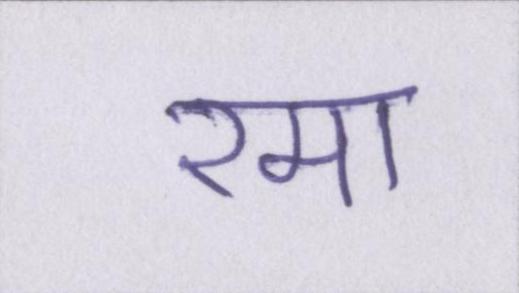 रमा